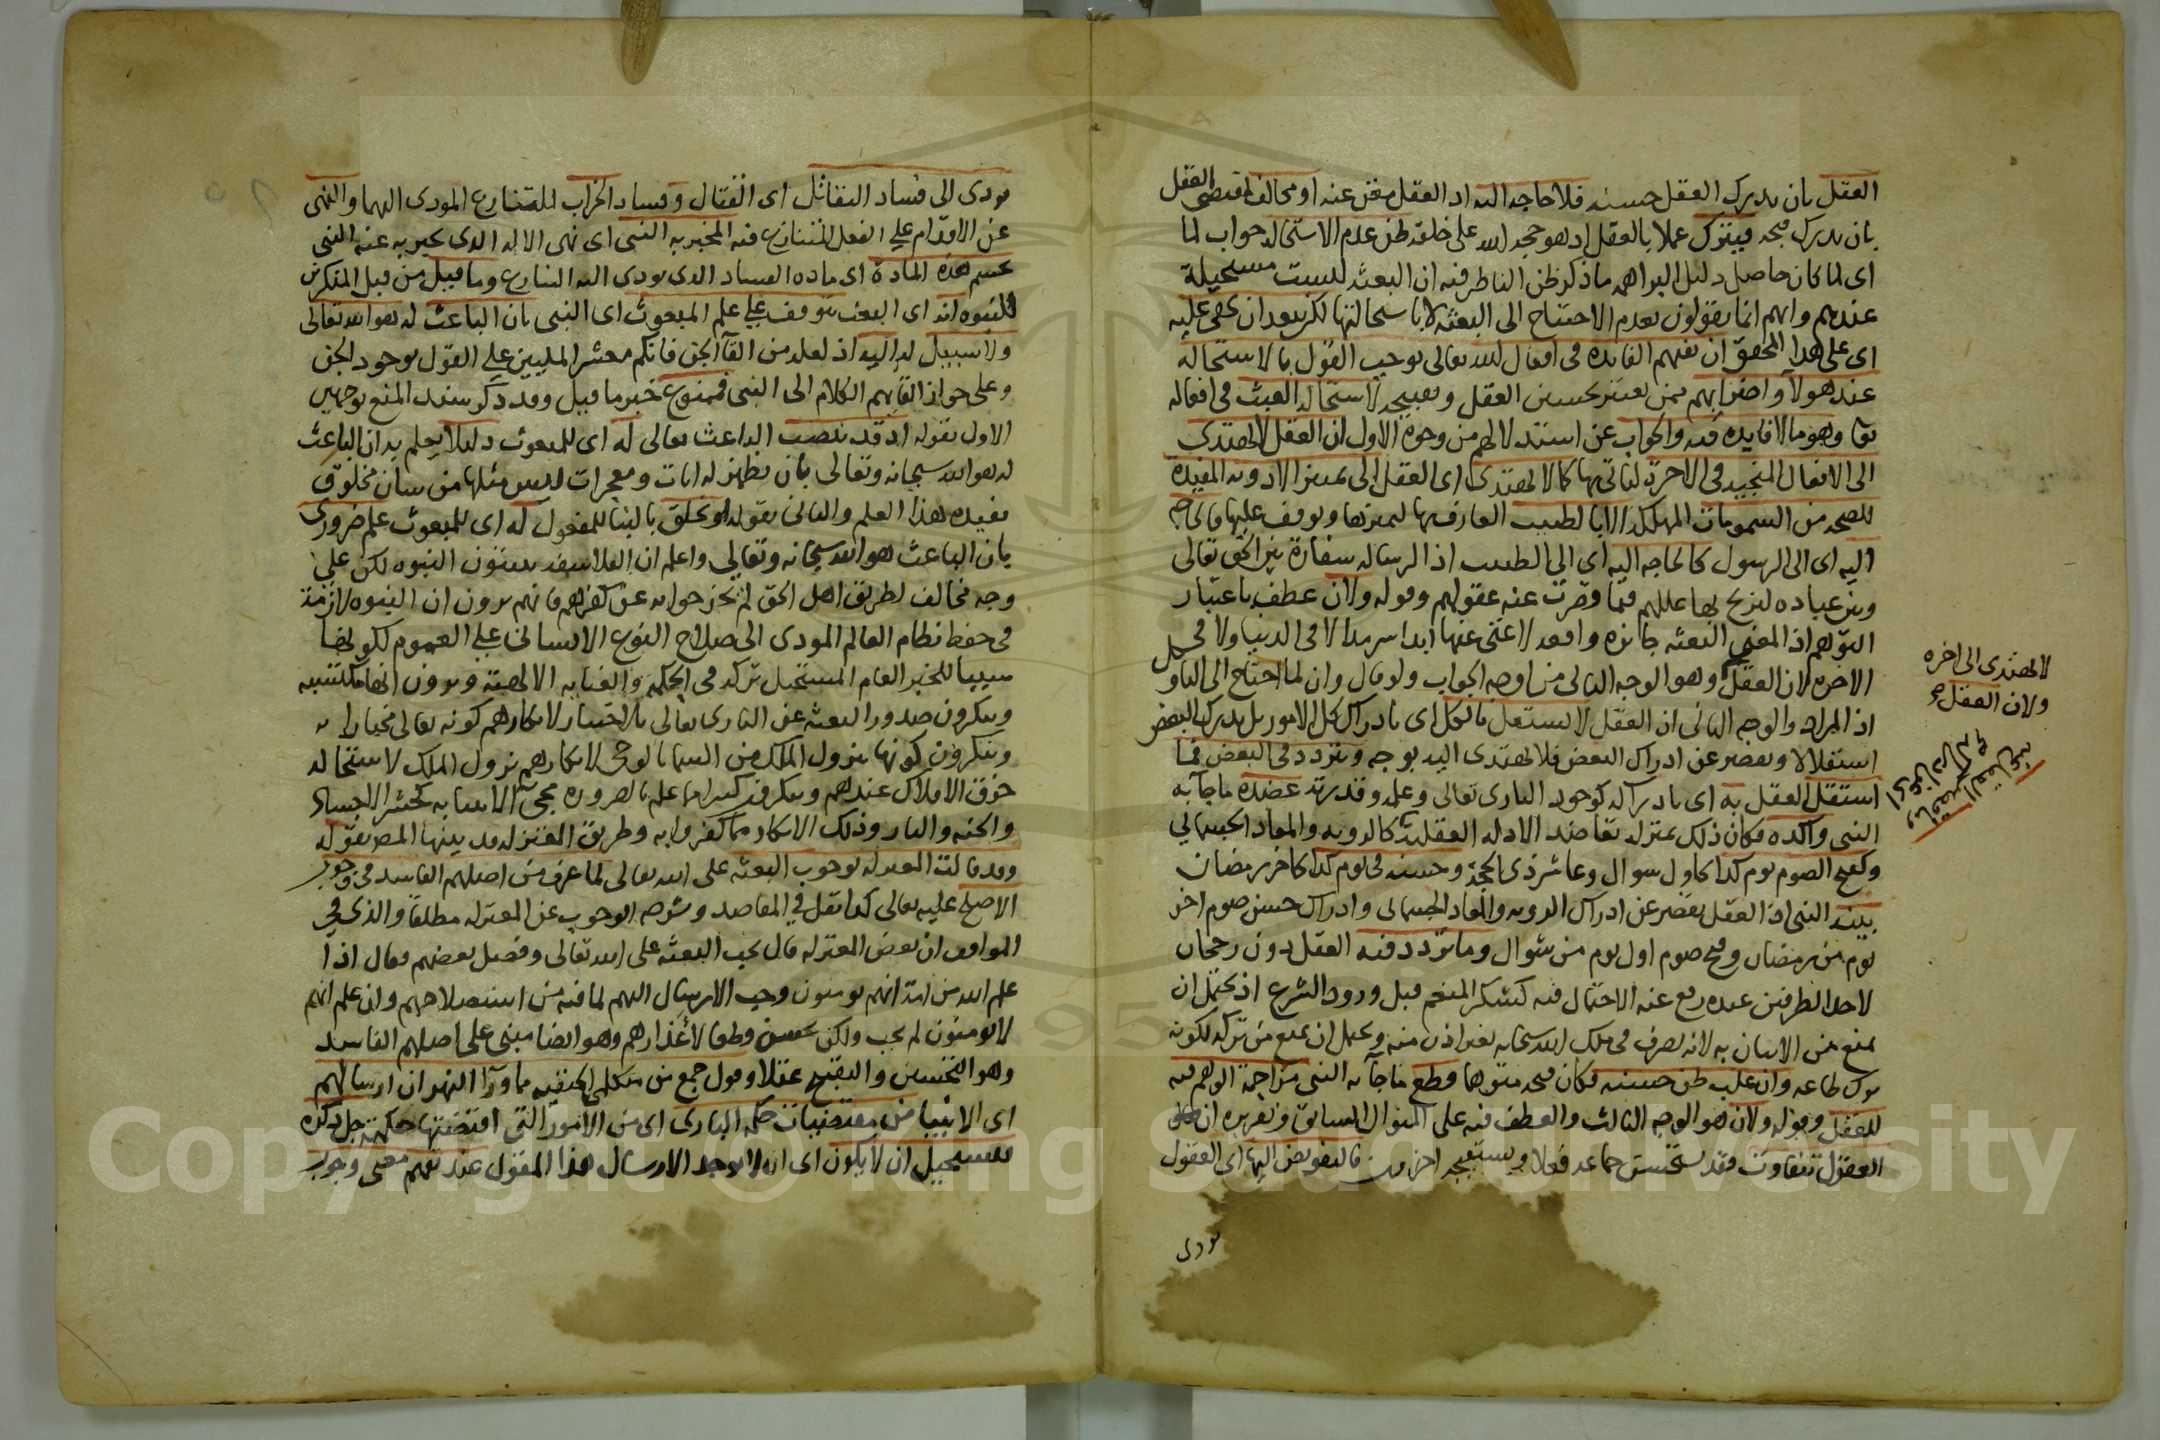 العقل بان يدرك العقل حسنه فلا حاجه اليه اذ العقل مغن عنه او مخالف لمقتضى العقل
بان يدرك قبحه فيترك عملا بالعقل اذ هو حجه لله على خلقه ظن عدم الاستحاله جواب لما
اى لما كان حاصل دليل البراهمه ما ذكر ظن الناظر فيه ان البعثه ليست مستحيلة
عندهم وانهم انما يقولون بعدم الاحتياج الى البعثه لا باستحالتها لكن بعد ان يخفى عليه
اى على هذا المحقق ان نفيهم الفايده فى افعال الله تعالى يوجب القول بالاستحاله
عند هولآء واضرابهم ممن يعتبر تحسين العقل وتقبيحه لاستحاله العبث فى افعاله
تعا وهو ما لا فايده فيه والجواب عن استدلالهم من وجوه الاول ان العقل لا يهتدى
الى الافعال المنجيه فى الاخرة لناتى بها كما لا يهتدى اى العقل الى تمييز الادويه المفيدة
للصحه من السمومات المهلكه الا بالطبيب العارف بها ليميزها ويوقف عليها فالحاجه
اليه اى الى الرسول كالحاجه اليه اى الى الطبيب اذ الرساله سفارة بين الحق تعالى
وبين عباده ليزيح بها عللهم فيما قصرت عنه عقولهم وقوله ولان عطف باعتبار
التوهم اذ المعنى البعثه جايزه واقعه لا غنى عنها ابدا سرمدا لا فى الدنيا ولا فى
الاخره لان العقل وهو الوجه الثانى من اوجه الجواب ولو قال وان لما احتاج الى التاويل
اذ المراد والوجه الثانى ان العقل لا يستقل بالكل اى بادراك كل الامور بل يدرك البعض
استقلالا ويقصر عن ادراك البعض فلا يهتدى اليه بوجه ويتردد فى البعض فما
استقل العقل به اى بادراكه كوجود البارى تعالى وعلمه وقدرته عضده ما جآ به
النبى واكده فكان ذلك بمنزله تعاضد الادله العقليه كالرويه والمعاد الجسمانى
وكقبح الصوم يوم كذا كاول شوال وعاشر ذى الحجة وحسنه فى يوم كذا كاخر رمضان
بينه النبى اذ العقل يقصر عن ادراك الرويه والمعاد الجسمانى وادراك حسن صوم اخر
يوم من رمضان وقبح صوم اول يوم من شوال وما تردد فيه العقل دون رجحان
لاحد الطرفين عنده رفع عنه الاحتمال فيه كشكر المنعم قبل ورود الشرع اذ يحتمل ان
يمنع من الاتيان به لانه تصرف فى ملك الله سبحانه بغير اذن منه ويحتمل ان يمنع من تركه لكونه
ترك طاعه وان غلب ظن حسنه فكان قبحه متوهما قطع ما جآ به النبى مزاحمة الوهم فيه
للعقل وقوله ولان هو الوجه الثالث والعطف فيه على المنوال السابق وتقريره ان
العقول تتفاوت فقد يستحسن جماعه فعلا ويستقبحه اخرون فالتفويض اليها اى العقول
يودى
لا يهتدى الى اخره
ولان العقل
يودى الى فساد التقاتل اى القتال وفساد الخراب للتنازع المودى اليهما والنهى
عن الاقدام على الفعل المتنازع فيه المخبر به النبى اى نهى الاله الذى يخبر به عنه النبى
يحسم هذه المادة اى ماده الفساد الذى يودى اليه التنازع وما قيل من قبل المنكرين
للنبوه انه اى البعث يتوقف على علم المبعوث اى النبى بان الباعث له هو الله تعالى
ولا سبيل له اليه اذ لعله من القآ الجن فانكم معشر المليين على القول بوجود الجن
وعلى جواز القايهم الكلام الى النبى فممنوع خبر ما قيل وقد ذكر سند المنع بوجهين
الاول بقوله اذ قد ينصب الباعث تعالى له اى للمبعوث دليلا يعلم به ان الباعث
له هو الله سبحانه وتعالى بان يظهر له ايات ومعجزات ليس مثلها من شان مخلوق
تفيده هذا العلم والثانى بقوله او يخلق بالبنا للمفعول له اى للمبعوث علم ضرورى
بان الباعث هو الله سبحانه وتعالى واعلم ان الفلاسفه يثبتون النبوه لكن على
وجه مخالف لطريق اهل الحق لم يخرجوا به عن كفرهم فانهم يرون ان النبوه لازمة
فى حفظ نظام العالم المودى الى صلاح النوع الانسانى على العموم لكونها
سببا للخير العام المستحيل تركه فى الحكمة والعنايه الالهية ويرون انها مكتسبه
وينكرون صدور البعثه عن البارى تعالى بالاختيار لانكارهم كونه تعالى مختارا
وينكرون كونها بنزول الملك من السما بالوحى لانكارهم نزول الملك لاستحاله
خرق الافلاك عندهم وينكرون كثيرا مما علم بالضروره مجئ الانبيا به كحشر الاجساد
والجنه والنار وذلك الانكار مما كفروا به وطريق المعتزله قد بينها المص بقوله
وقد قالت المعتزله بوجوب البعثه على الله تعالى لما عرف من اصلهم الفاسد فى وجوب
الاصلح عليه تعالى كذا نقل فى المقاصد وشرحه الوجوب عن المعتزله مطلقا والذى فى
المواقف ان بعض المعتزله قال يجب البعثه على الله تعالى وفصل بعضهم فقال اذا
علم الله من امة انهم يومنون وجب الارسال اليهم لما فيه من استصلاحهم وان علم انهم
لا يومنون لم يجب ولكن يحسن قطعا لاعذارهم وهو ايضا مبنى على اصلهم الفاسد
وهو التحسين والتقبيح عقلا وقول جمع من متكلمى الحنفيه مما ورآ النهر ان ارسالهم
اى الانبيا من مقتضيات حكمه البارى اى من الامور التى اقتضتها حكمته جل ذكره
فيستحيل ان لا يكون اى ان لا يوجد الارسال هذا المقول عند تفهم معنى وجوب